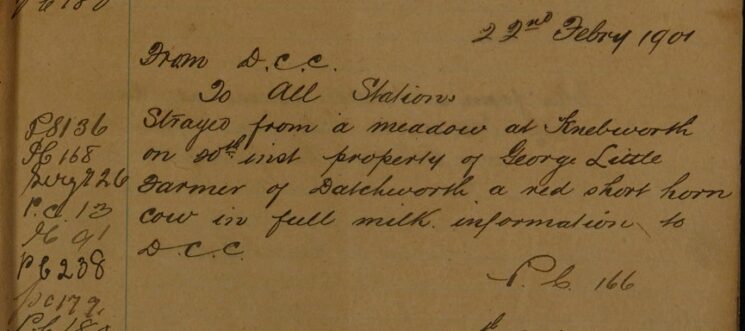 P C 180
22nd Febry 1901
From D.C.C.
To All Stations
Strayed from a meadow at Knebworth
on 20th inst property of George Little
Farmer of Datchworth a red short horn
cow in full milk. information to
D.C.C.
P.C. 166
PS 136
PC 168
Sergt 26
P.C. 13
PC 91
PC 238
PC 179.
PC 180